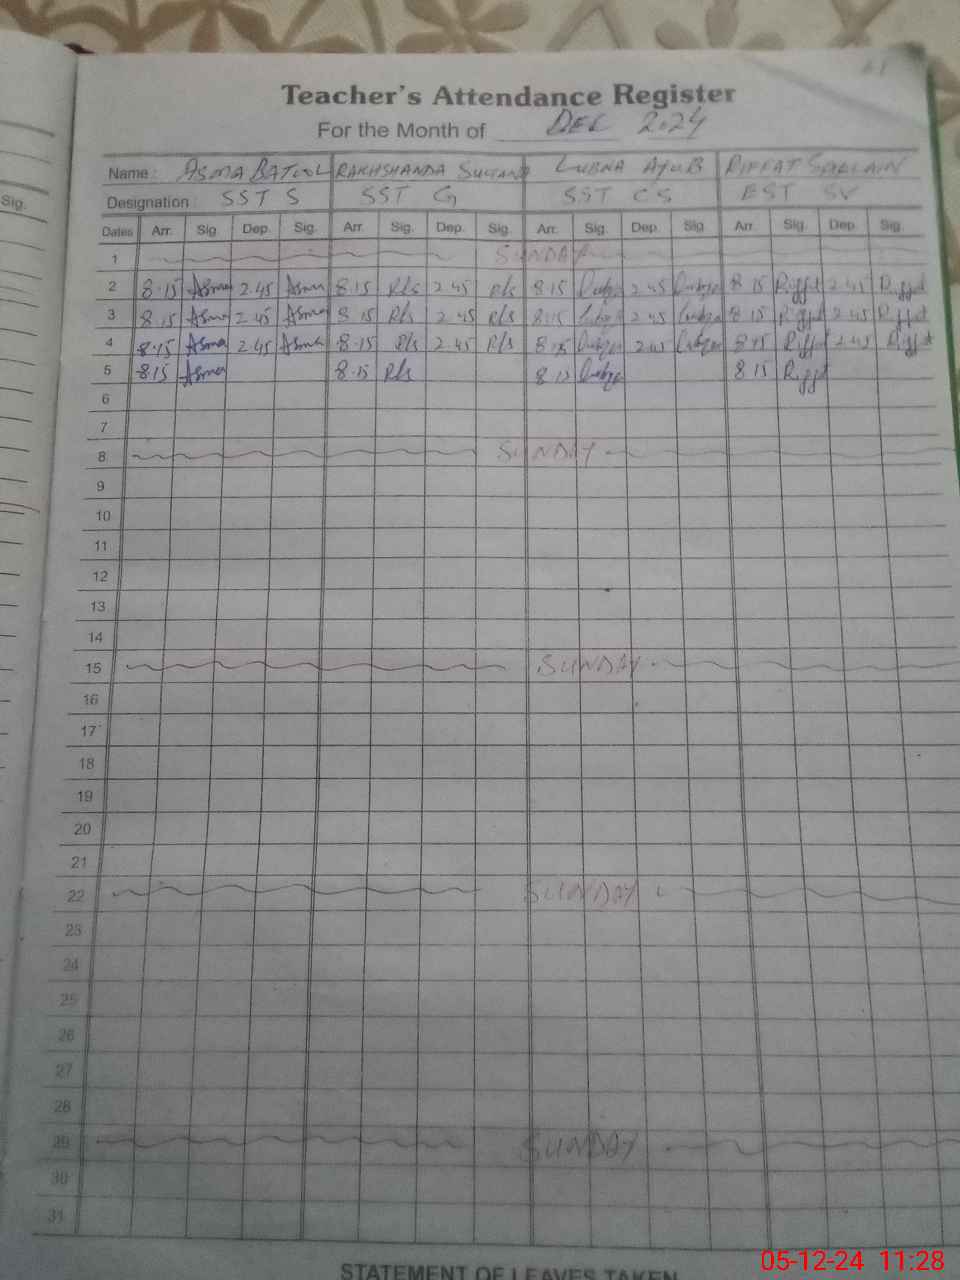 Teacher's Attendance Register
For the Month of DEC 2024
Name : ASMA BATOOL RAKHSHANDA SULTANA LUBNA AYUB RIFFAT SAQLAIN
Designation : SST S SST G SST CS EST SV
Dates Arr. Sig. Dep. Sig. Arr. Sig. Dep. Sig. Arr. Sig. Dep. Sig. Arr. Sig. Dep. Sig.
Sig.
1 SUNDAY
2 8.15 Asma 2.45 Asma 8.15 R/s 2.45 R/s 8.15 Lubna 2.45 Lubna 8.15 Riffat 2.45 Riffat
3 8.15 Asma 2.45 Asma 8.15 R/s 2.45 R/s 8.15 Lubna 2.45 Lubna 8.15 Riffat 2.45 Riffat
4 8.15 Asma 2.45 Asma 8.15 R/s 2.45 R/s 8.15 Lubna 2.45 Lubna 8.15 Riffat 2.45 Riffat
5 8.15 Asma 8.15 R/s 8.15 Lubna 8.15 Riffat
6
7
8 SUNDAY
9
10
11
12
13
14
15 SUNDAY
16
17
18
19
20
21
22 SUNDAY
23
24
25
26
27
28
29 SUNDAY
30
31
STATEMENT OF LEAVES TAKEN
05-12-24 11:28